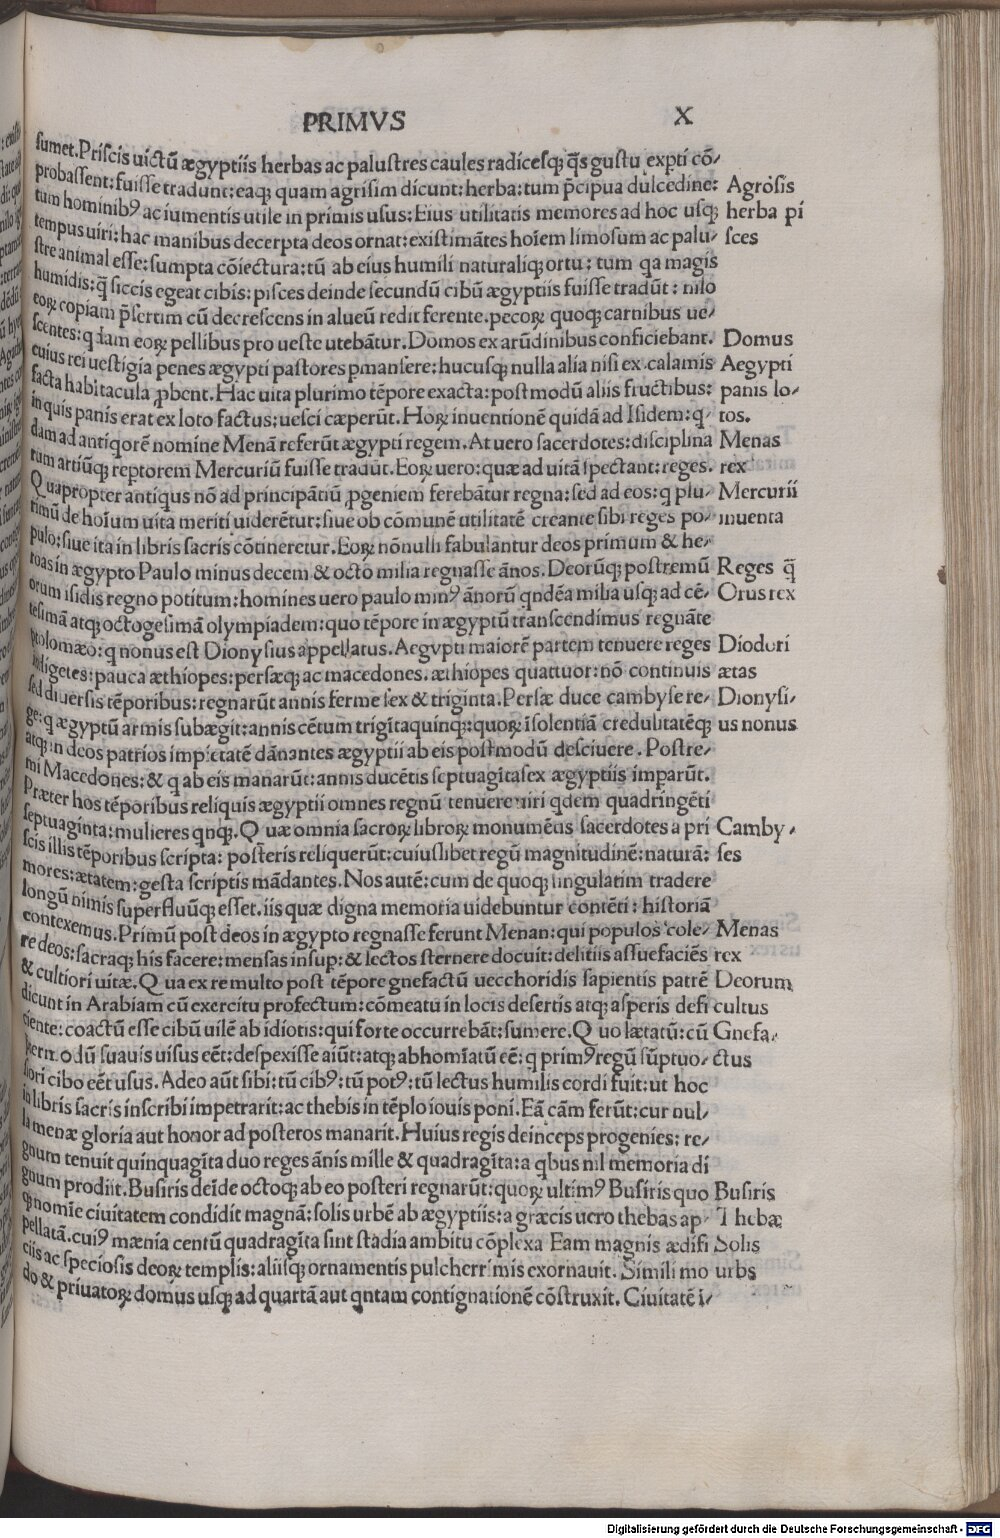 PRIMVS X
sumet. Priscis uictũ ægyptiis herbas ac palustres caules radicesqꝫ q̃s gustu expti cõ/
probassent: fuisse tradunt: eaqꝫ quam agrisim dicunt: herba: tum p̃cipua dulcedine: Agrosis
tum hominibꝰ ac iumentis utile in primis usus: Eius utilitatis memores ad hoc usqꝫ herba pi
tempus uiri: hac manibus decerpta deos ornat: existimãtes hoĩem limosum ac palu/ sces
stre animal esse: sumpta cõiectura: tũ ab eius humili naturaliqꝫ ortu: tum qa magis
humidis: q̃ siccis egeat cibis: pisces deinde secundũ cibũ ægyptiis fuisse tradũt: nilo
eoꝝ copiam p̃sertim cũ decrescens in alueũ redit ferente. pecoꝝ quoqꝫ carnibus ue/
scentes: qdam eoꝝ pellibus pro ueste utebãtur. Domos ex arũdinibus conficiebant. Domus
cuius rei uestigia penes ægypti pastores pmansere: hucusqꝫ nulla alia nisi ex calamis Aegypti
facta habitacula ꝓbent. Hac uita plurimo tẽpore exacta: postmodũ aliis fructibus: panis lo/
in quis panis erat ex loto factus: uesci cæperũt. Hoꝝ inuentionẽ quidã ad Isidem: q/ tos.
dam ad antiqorẽ nomine Menã referũt ægypti regem. At uero sacerdotes: disciplina Menas
rum artiũqꝫ reptorem Mercuriũ fuisse tradũt. Eoꝝ uero: quæ ad uitã spectant: reges. rex
Quapropter antiqus nõ ad principãtiũ ꝓgeniem ferebãtur regna: sed ad eos: q plu/ Mercurii
rimũ de hoĩum uita meriti uiderẽtur: siue ob cõmunẽ utilitatẽ creante sibi reges po/ inuenta
pulo: siue ita in libris sacris cõtineretur. Eoꝝ nõnulli fabulantur deos primum & he/
roas in ægypto Paulo minus decem & octo milia regnasse ãnos. Deorũqꝫ postremũ Reges q̃
orum isidis regno potitum: homines uero paulo minꝰ ãnorũ qndẽa milia usqꝫ ad cẽ/ Orus rex
tesimã atqꝫ octogesimã olympiadem: quo tẽpore in ægyptũ transcendimus regnãte
ptolomæo: q nonus est Dionysius appellatus. Aegypti maiorẽ partem tenuere reges Diodori
indigetes: pauca æthiopes: persæqꝫ ac macedones. æthiopes quattuor: nõ continuis ætas
sed diuersis tẽporibus: regnarũt annis ferme sex & triginta. Persæ duce cambyse re/ Dionysi/
ge: q ægyptũ armis subægit: annis cẽtum trigĩta quinqꝫ: quoꝝ ĩsolentiã credulitatẽqꝫ us nonus
atqꝫ in deos patrios impietatẽ dãnantes ægyptii ab eis postmodũ desciuere. Postre/
mi Macedones: & q ab eis manarũt: annis ducẽtis septuagĩtasex ægyptiis imparũt.
Præter hos tẽporibus reliquis ægyptii omnes regnũ tenuere uiri qdem quadringẽti
septuaginta: mulieres qnqꝫ. Quæ omnia sacroꝝ libroꝝ monumẽtis sacerdotes a pri Camby/
scis illis tẽporibus scripta: posteris reliquerũt: cuiuslibet regũ magnitudinẽ: naturã: ses
mores: ætatem: gesta scriptis mãdantes. Nos autẽ: cum de quoqꝫ singulatim tradere
longũ nimis superfluũqꝫ esset. iis quæ digna memoria uidebuntur contẽti: historiã
contexemus. Primũ post deos in ægypto regnasse ferunt Menan: qui populos cole/ Menas
re deos: sacraqꝫ his facere: mensas insup: & lectos sternere docuit: delitiis assuefaciẽs rex
& cultiori uitæ. Qua ex re multo post tẽpore gnefactũ uecchoridis sapientis patrẽ Deorum
dicunt in Arabiam cũ exercitu profectum: cõmeatu in locis desertis atqꝫ asperis defi cultus
ciente: coactũ esse cibũ uilẽ ab idiotis: qui forte occurrebãt: sumere. Quo lætatũ: cũ Gnefa/
permodũ suauis uisus eẽt: despexisse aiũt: atqꝫ abhomĩatũ eẽ: q primꝰ regũ sũptuo/ ctus
siori cibo eẽt usus. Adeo aũt sibi: tũ cibꝰ: tũ potꝰ: tũ lectus humilis cordi fuit: ut hoc
in libris sacris inscribi impetrarit: ac thebis in tẽplo iouis poni. Eã cãm ferũt: cur nul/
la menæ gloria aut honor ad posteros manarit. Huius regis deinceps progenies: re/
gnum tenuit quinquagĩta duo reges ãnis mille & quadragĩta: a qbus nil memoria di
gnum prodiit. Busiris deĩde octoqꝫ ab eo posteri regnarũt: quoꝝ ultimꝰ Busiris quo Busiris
qꝫ nomĩe ciuitatem condidit magnã: solis urbẽ ab ægyptiis: a græcis uero thebas ap/ Thebæ
pellatã. cuiꝰ mænia centũ quadragĩta sint stadia ambitu cõplexa Eam magnis ædifi Solis
ciis ac speciosis deoꝝ templis: aliisqꝫ ornamentis pulcherrimis exornauit. Simili mo urbs
do & priuatoꝝ domus usqꝫ ad quartã aut qntam contignationẽ cõstruxit. Ciuitatẽ ĩ/
Digitalisierung gefördert durch die Deutsche Forschungsgemeinschaft - DFG